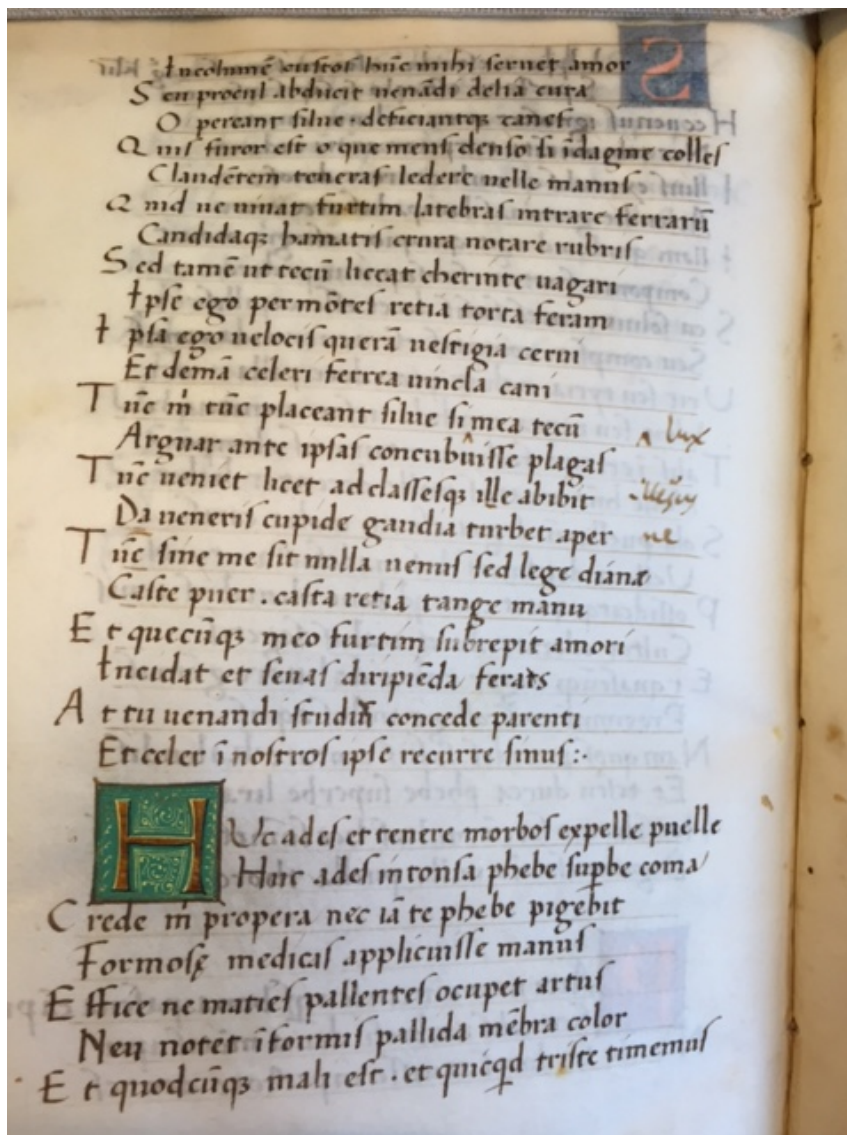 Incolumē custos hūc mihi servet amor
S ed procul abducit uenādi delia cura
O pereant silue · deficiantqꝫ canes
Q uis furor est o que mens denso si īdagine colles
Claudētem teneras ledere uelle manus
Q uid ue iuuat furtim latebras intrare ferrarū
Candidaqꝫ hamatis crura notare rubris
S ed tamē ut tecū liceat cherinte uagari
Ipse ego per mōtes retia torta feram
I psa ego uelocis querā uestigia cerui
Et demā celeri ferrea uincla cani
T ūc m̄ tūc placeant silue si mea tecū ^ lux
Arguar ante ipsas concubuisse plagas
T ūc ueniet licet ad classesqꝫ ille abibit
Da ueneris cupide gaudia turbet aper ne
T ūc sine me sit nulla uenus sed lege dianæ
Caste puer . casta retia tange manu
E t quecūqꝫ meo furtim subrepit amori
Incidat et seuas diripiēda feras
A t tu uenandi studiū concede parenti
Et celer ī nostros ipse recurre sinus :·
H Vc ades et tenere morbos expelle puelle
Huc ades intonsa phebe supbe coma
C rede m̄ propera nec iā te phebe pigebit
Formosę medicas applicuisse manus
E ffice ne maties pallentes ocupet artus
Neu notet īformis pallida mēbra color
E t quodcūqꝫ mali est · et quicqd triste timemus